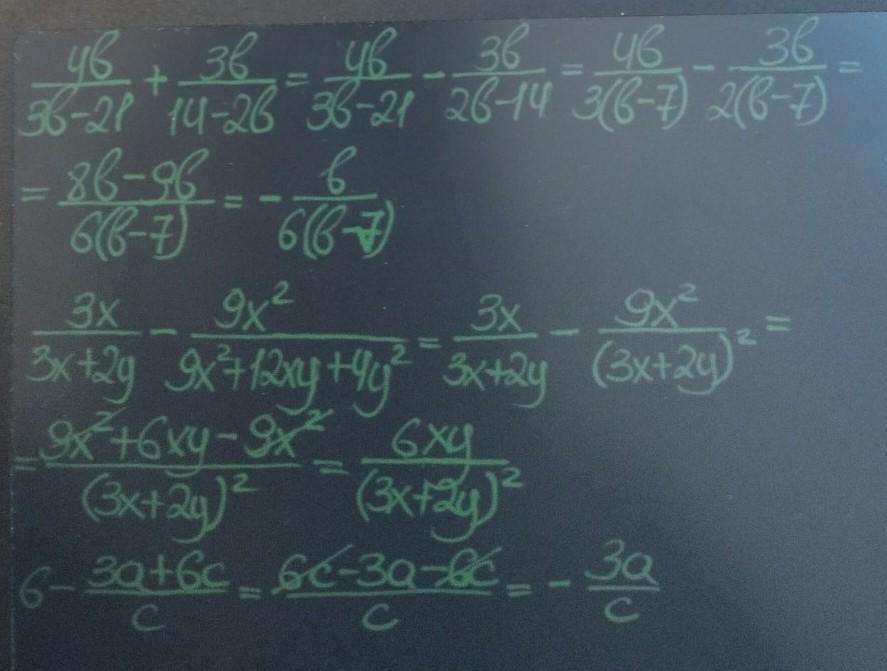 4b/(3b-21) + 3b/(14-2b) = 4b/(3b-21) - 3b/(2b-14) = 4b/(3(b-7)) - 3b/(2(b-7)) =
= (8b-9b)/(6(b-7)) = - b/(6(b-7))
3x/(3x+2y) - 9x²/(9x²+12xy+4y²) = 3x/(3x+2y) - 9x²/(3x+2y)² =
= (9x²+6xy-9x²)/(3x+2y)² = 6xy/(3x+2y)²
6 - (3a+6c)/c = (6c-3a-6c)/c = - 3a/c